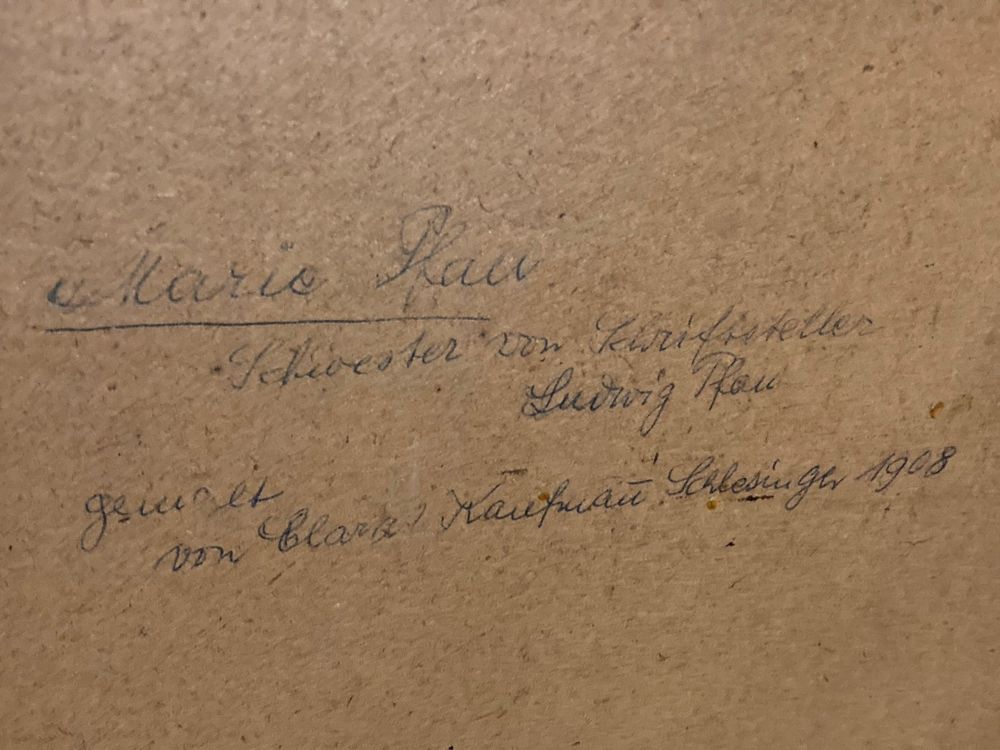 Marie Pfau
Schwester von Schriftsteller
Ludwig Pfau
gemalt
von Clara Kaufmann Schlesinger 1908